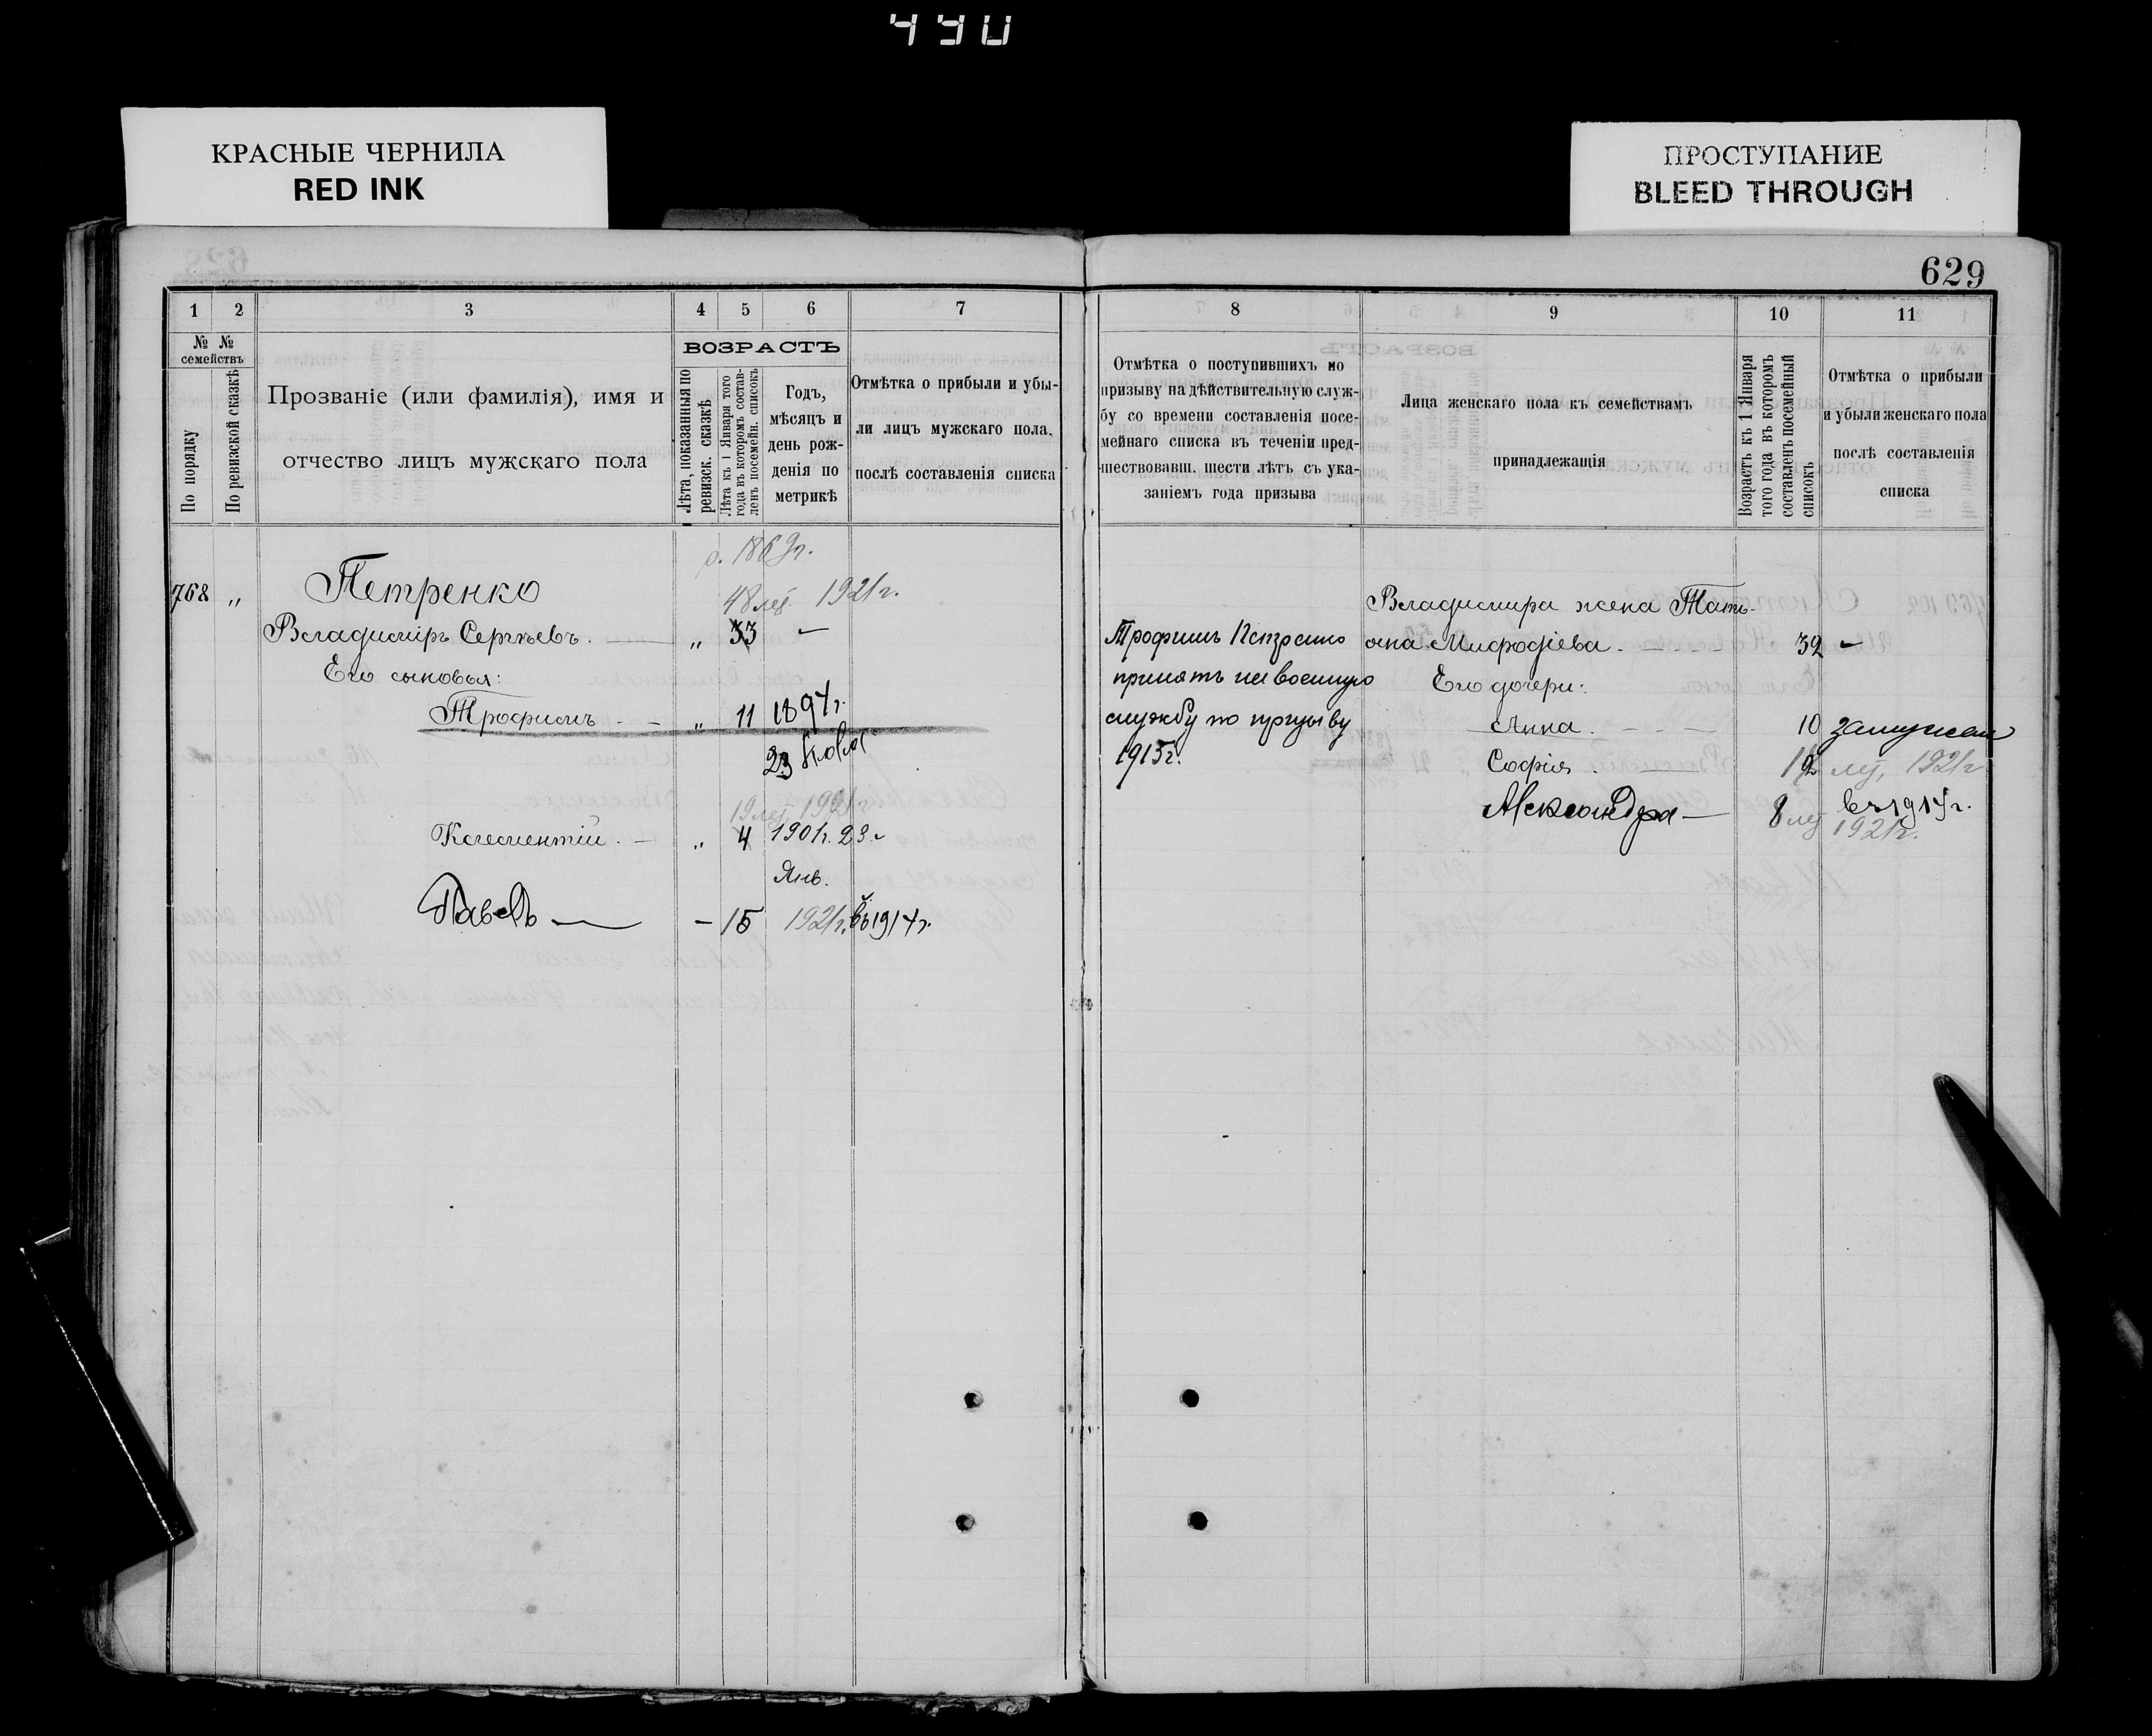 490
КРАСНЫЕ ЧЕРНИЛА
RED INK
ПРОСТУПАНИЕ
BLEED THROUGH
629
1 2 3 4 5 6 7
№ № семействъ
По порядку
По ревизской сказкѣ
Прозваніе (или фамилія), имя и
отчество лицъ мужскаго пола
ВОЗРАСТЪ
Лѣта, показанныя по
ревизск. сказкѣ
Лѣта къ 1 Января того
года въ которомъ состав-
ленъ посемейн. списокъ
Годъ,
мѣсяцъ и
день рож-
денія по
метрикѣ
Отмѣтка о прибыли и убы-
ли лицъ мужскаго пола,
послѣ составленія списка
р. 1869г.
768 „ Петренко 48 лѣт 1921г.
Владиміръ Сергѣевъ. — „ 33 —
Его сыновья:
Трофимъ - — „ 11 1894г.
23
19 лѣт 1921г.
Климентій. — „ 4 1901г. 23
Янв.
Павелъ — - 15 1921г. въ 1914г.
8 9 10 11
Отмѣтка о поступившихъ по
призыву на дѣйствительную служ-
бу со времени составленія посе-
мейнаго списка въ теченіи пред-
шествовавш. шести лѣтъ съ ука-
заніемъ года призыва
Лица женскаго пола къ семействамъ
принадлежащія
Возрастъ къ 1 Января
того года въ которомъ
составленъ посемейный
списокъ
Отмѣтка о прибыли
и убыли женскаго пола
послѣ составленія
списка
Трофимъ Петренко
принятъ на военную
службу по призыву
1915г.
Владимира жена Тать-
яна Мифодіева. - - - 32 —
Его дочери:
Анна. - - — 10 замужем
Софія. — 12 лѣт, 1921г
Александра — 8 лѣт въ 1914г.
1921г.